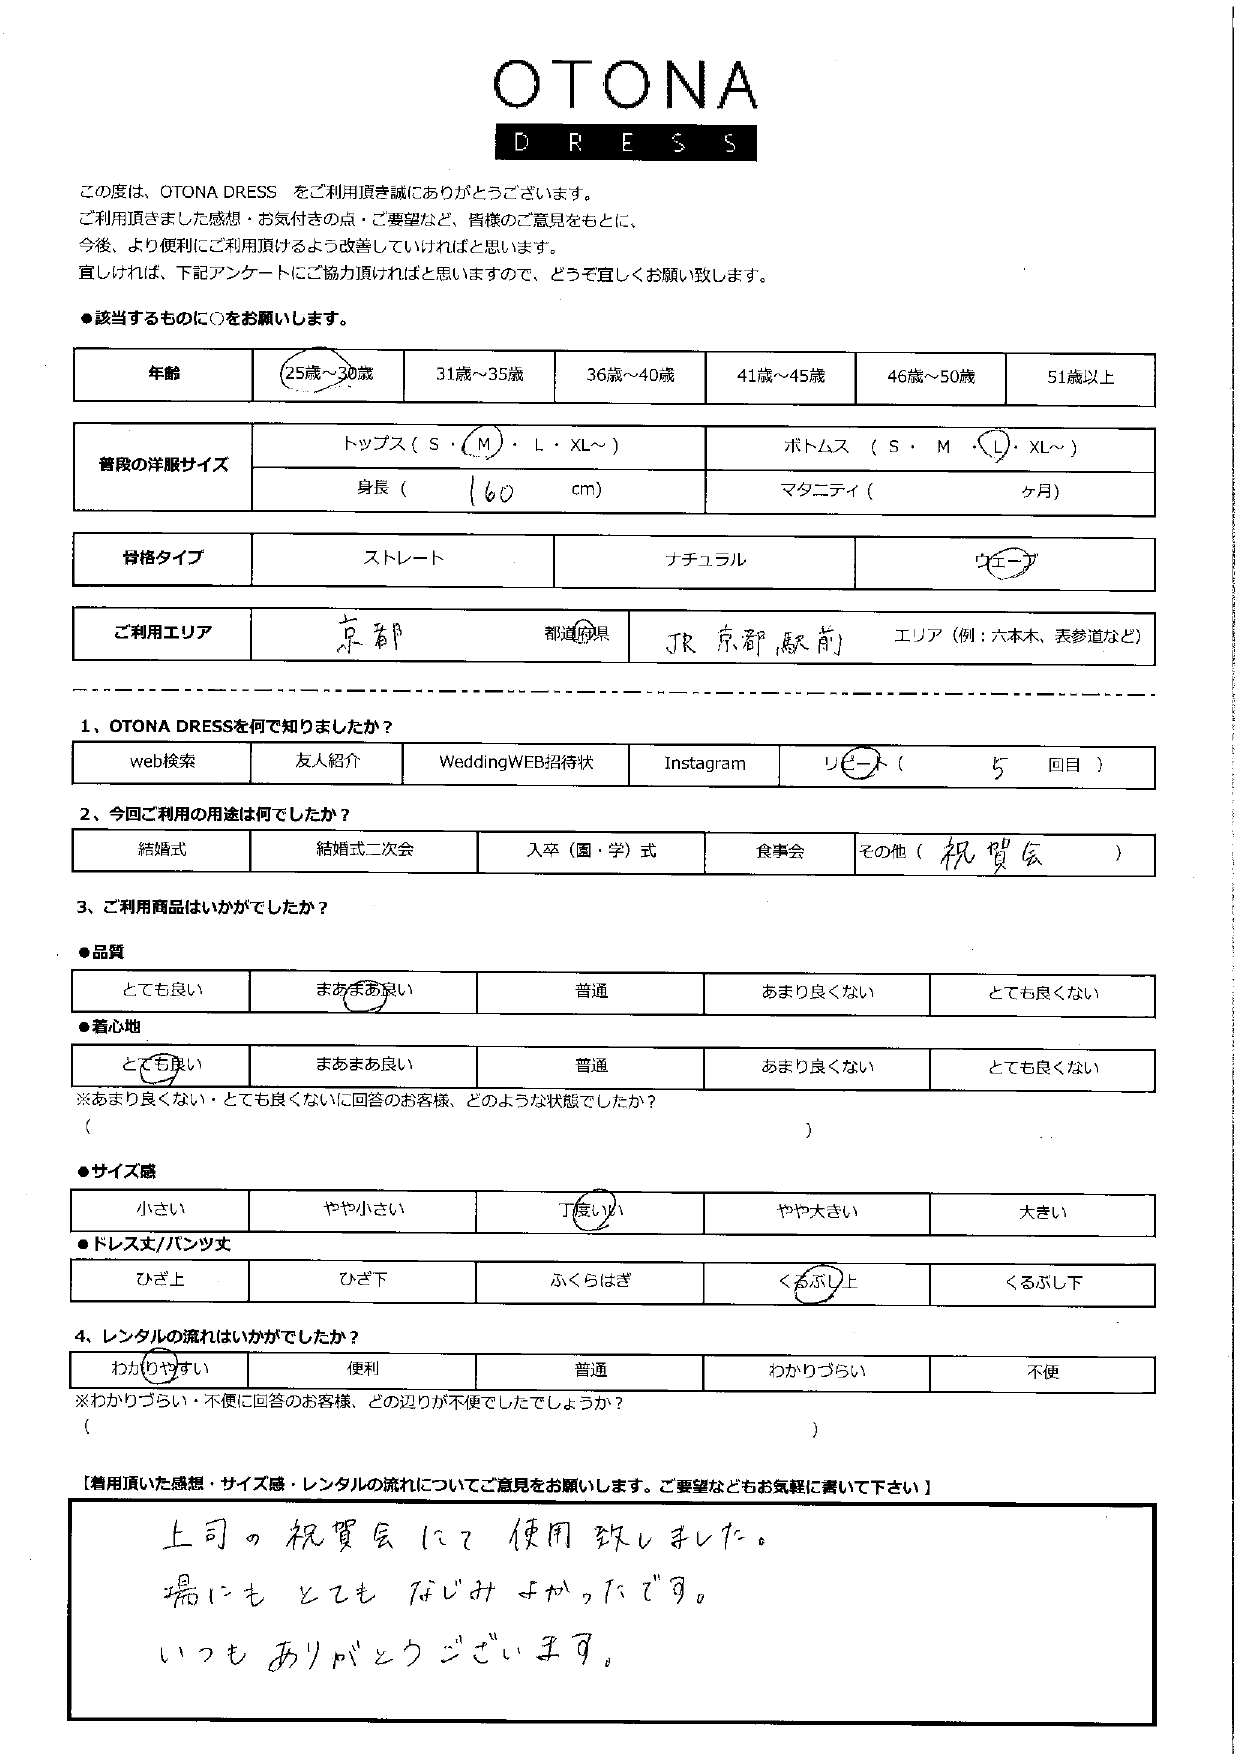 OTONA
DRESS
この度は、OTONA DRESS　をご利用頂き誠にありがとうございます。
ご利用頂きました感想・お気付きの点・ご要望など、皆様のご意見をもとに、
今後、より便利にご利用頂けるよう改善していければと思います。
宜しければ、下記アンケートにご協力頂ければと思いますので、どうぞ宜しくお願い致します。
●該当するものに○をお願いします。
年齢 25歳～30歳 31歳～35歳 36歳～40歳 41歳～45歳 46歳～50歳 51歳以上
普段の洋服サイズ トップス ( S ・ M ・ L ・ XL～ ) ボトムス ( S ・ M ・ L ・ XL～ )
身長 ( 160 cm) マタニティ ( ヶ月)
骨格タイプ ストレート ナチュラル ウェーブ
ご利用エリア 京都 都道府県 JR 京都駅前 エリア（例：六本木、表参道など）
1、OTONA DRESSを何で知りましたか？
web検索 友人紹介 WeddingWEB招待状 Instagram リピート ( 5 回目 )
2、今回ご利用の用途は何でしたか？
結婚式 結婚式二次会 入卒（園・学）式 食事会 その他 ( 祝賀会 )
3、ご利用商品はいかがでしたか？
●品質
とても良い まあまあ良い 普通 あまり良くない とても良くない
●着心地
とても良い まあまあ良い 普通 あまり良くない とても良くない
※あまり良くない・とても良くないに回答のお客様、どのような状態でしたか？
( )
●サイズ感
小さい やや小さい 丁度いい やや大きい 大きい
●ドレス丈/パンツ丈
ひざ上 ひざ下 ふくらはぎ くるぶし上 くるぶし下
4、レンタルの流れはいかがでしたか？
わかりやすい 便利 普通 わかりづらい 不便
※わかりづらい・不便に回答のお客様、どの辺りが不便でしたでしょうか？
( )
【着用頂いた感想・サイズ感・レンタルの流れについてご意見をお願いします。ご要望などもお気軽に書いて下さい】
上司の祝賀会にて使用致しました。
場にもとてもなじみよかったです。
いつもありがとうございます。